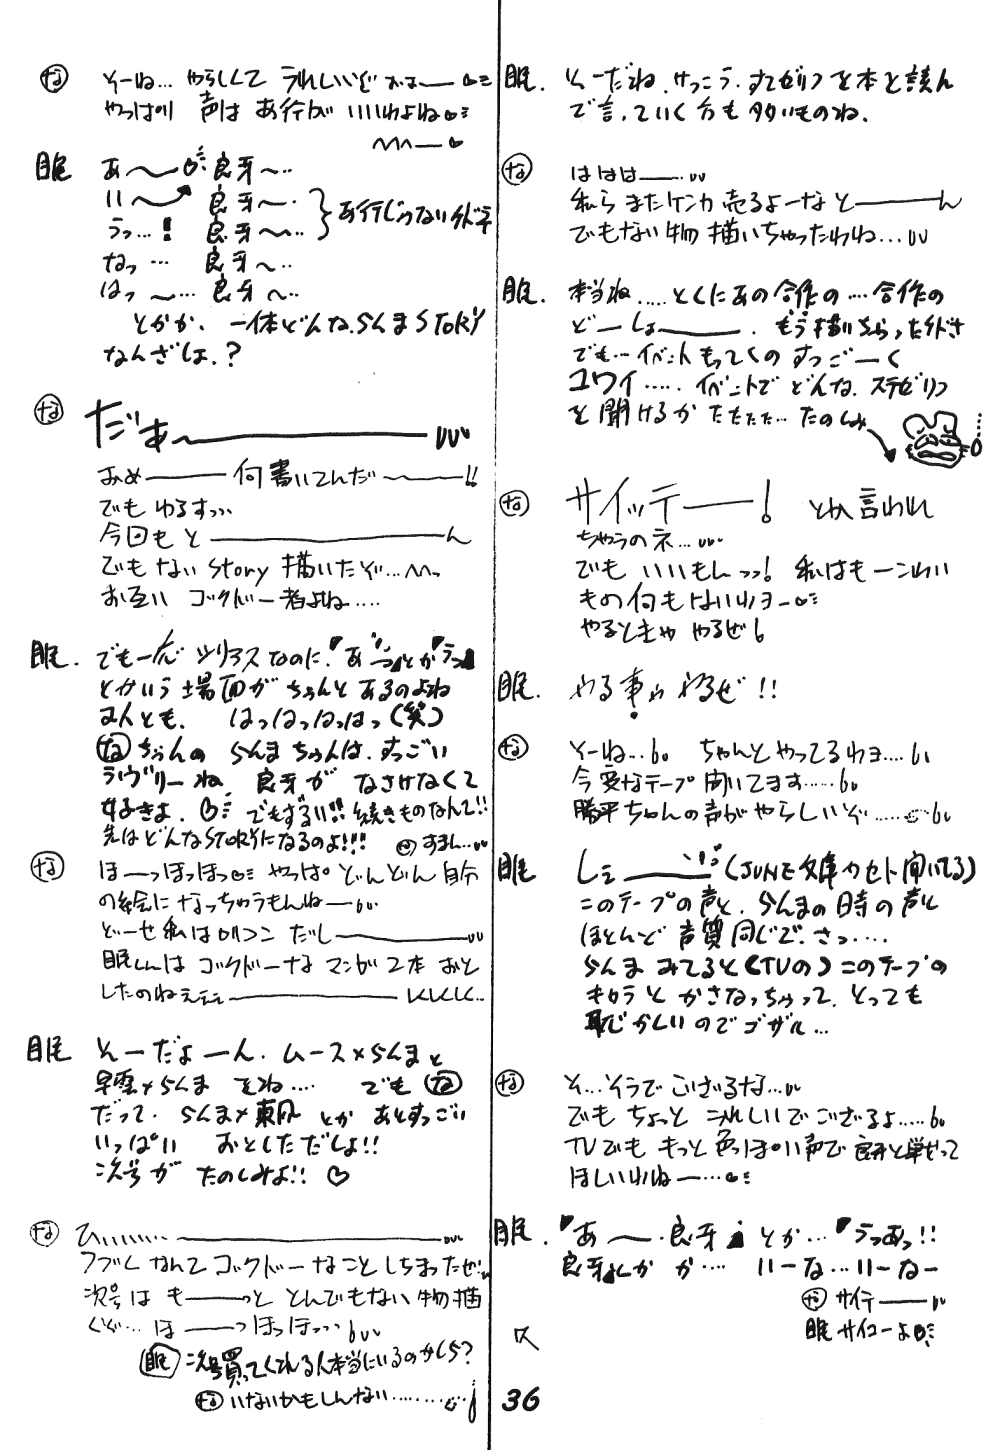 眠. そーだね、けっこう、すてゼリフを本と読ん
で言っていく方も多いものね。
な ははは——…
私らまたケンカ売るよーなと———ん
でもない物描いちゃったわね…
眠. 本当ね…..とくにあの合作の…合作の
どーしょ———. もう描いちゃったけどさ
でも…イベントもってくのすっごーく
コワイ….. イベントでどんな、ステゼリフ
を聞けるかたたたた…たのしみ
な サイッテ——! とか言われ
ちゃうのネ…
でもいいもしっっ! 私はもーこわい
もの何もないわヨー
やるときゃやるぜ
眠. やる事ゃやるぜ!!
な そーね… ちゃんとやってるわヨ….
今変なテープ聞いてます…..
勝平ちゃんの声がやらしいぞ…..
眠 し——(JUNE文庫カセット聞いてる)
このテープの声と、らんまの時の声と
ほとんど声質同じで、さっ….
らんまみてると(TVの)このテープの
キャラとかさなっちゃって、とっても
恥じかしいのでゴザル…
な そ…そうでござるな…
でもちょっとうれしいでござるよ…..
TVでももっと色っぽい声で良牙と戦って
ほしいわねー…
眠. 「あ〜・良牙」とか…「うっあっ!!
良牙」とかか…. いーな…いーなー
な サイテー——
眠 サイコーよ
な そーね… やらしくてうれしいぞおぉ——
やっぱり声はあ行がいいわよね
眠 あ〜— 良牙〜…
い〜 良牙〜・
うっ…! 良牙〜…
あ行じゃないけど
なっ… 良牙〜…
はっ〜… 良牙〜…
とかか、一体どんな、らんまSTORY
なんざしょ、?
な だぁ〜————
おめ———何書いてんだ〜——!!
でもゆるすっ…
今回もと————————ん
でもないstory描いたぞ…
お互いゴックドー者よね….
眠. でもーんシリアスなのに、「あっ」とか「うっ」
とかいう場面がちゃんとあるのよね
まんとも. はっはっはっはっ(笑)
なちゃんのらんまちゃんは、すっごい
ラヴリーね、良牙がなさけなくて
好きよ、でもずるい!!続きものなんて!!
先はどんなSTORYになるのよ!!! すまん…
な ほ——っほっほっ やっぱどんどん自分
の絵になっちゃうもんねー…
どーせ私はロリコンだし————
眠しんはゴックドーなマンガ2本おと
したのねえ——————しくしく…
眠 そーだよーん. ムース×らんまと
早雲×らんまをね…. でもな
だって、らんま×東風とかあとすっごい
いっぱい おとしただしょ!!
次号がたのしみよ!! ♡
な ひ…… —————————
フブしなんてゴックドーなことしちまったぜ!
次号はも——っととんでもない物描
くぞ…ほ——っほっほっ…
眠 次号買ってくれる人本当にいるのかしら?
な いないかもしんない………
36